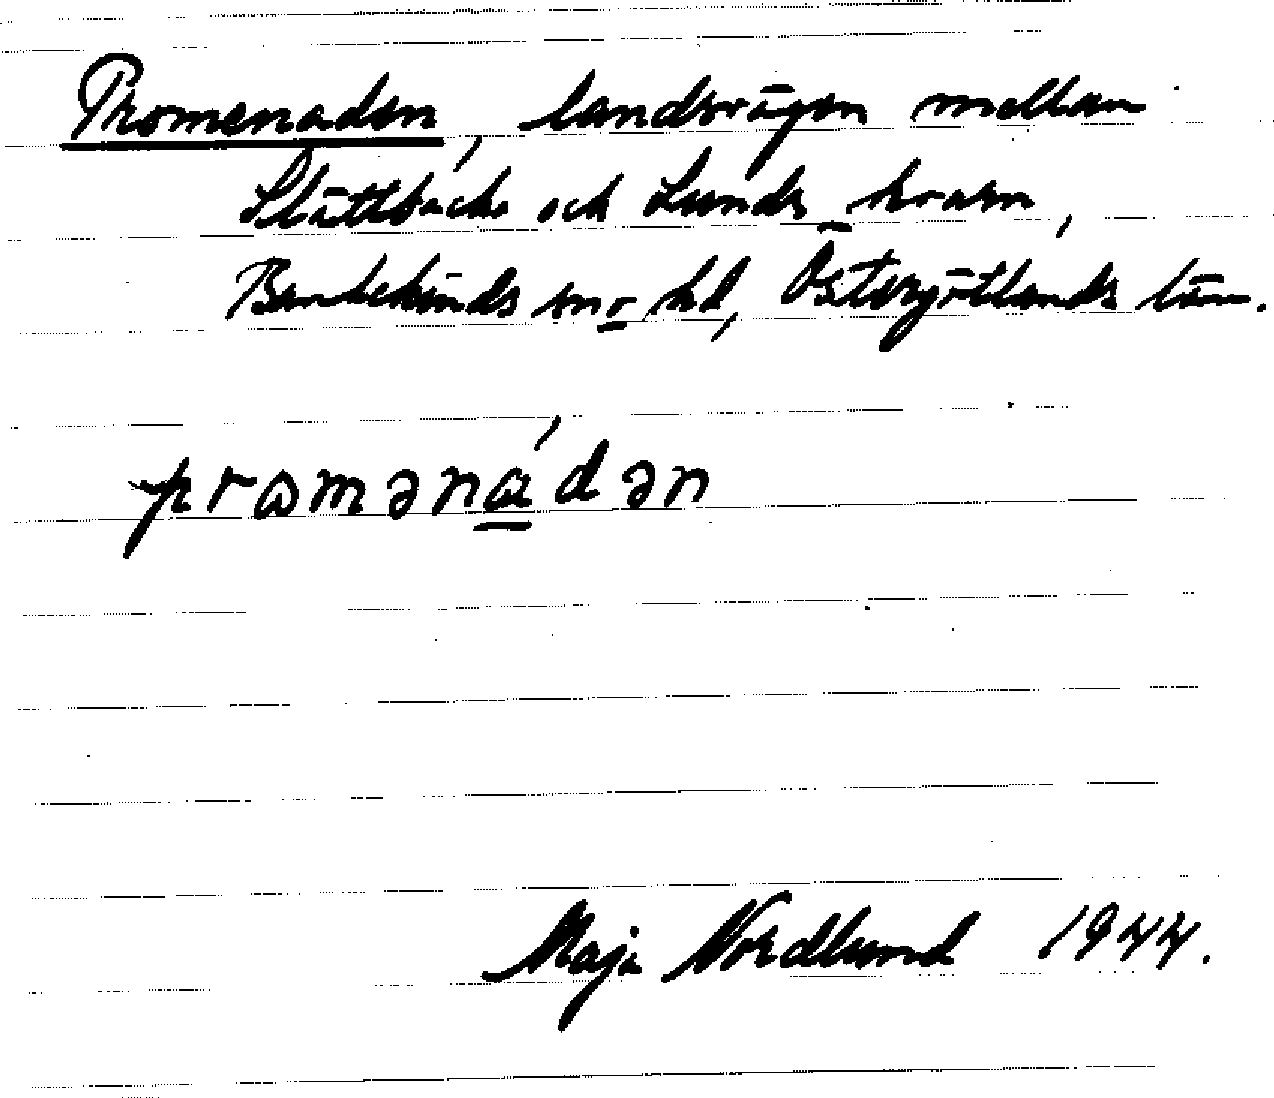 Promenaden, landsvägen mellan
Slättbacka och Lunds kvarn,
Bankekinds sn o hd, Östergötlands län.
promənɑ́dən
Maja Nordlund 1944.